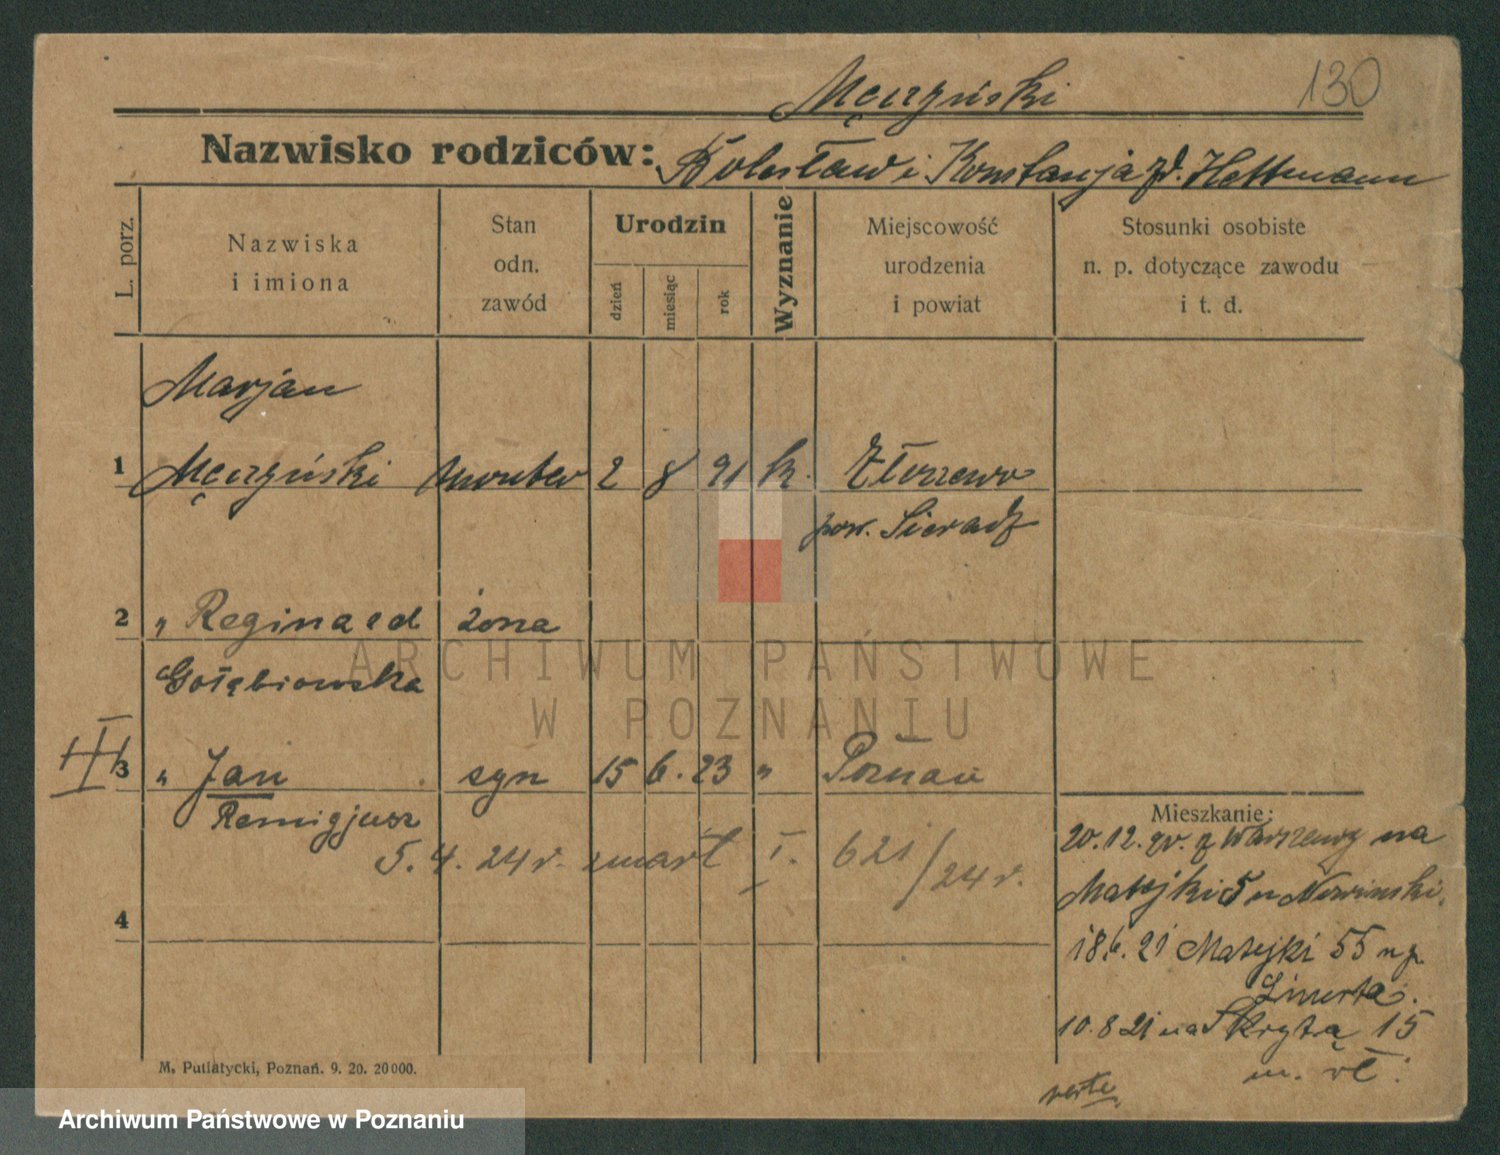 Męczyński
130
Nazwisko rodziców: Bolesław i Konstancja zd. Hettmann
L. porz.
Nazwiska
i imiona
Stan
odn.
zawód
Urodzin
dzień
miesiąc
rok
Wyznanie
Miejscowość
urodzenia
i powiat
Stosunki osobiste
n. p. dotyczące zawodu
i t. d.
Marjan
1 Męczyński monter 2 8 91 k.
pow. Sieradz
2 " Regina zd żona
Gołębiowska
3 " Jan syn 15 6. 23 " Poznań
Remigjusz
5. 4. 24 r. zmarł I. 621/24 r.
4
Mieszkanie:
20. 12. z Warszawy na
Matejki 5 u
18. 6. 21 Matejki 55 u p.
10. 8 21 na Skrytą 15
verte
M. Putiatycki, Poznań. 9. 20. 20000.
ARCHIWUM PAŃSTWOWE
W POZNANIU
Archiwum Państwowe w Poznaniu